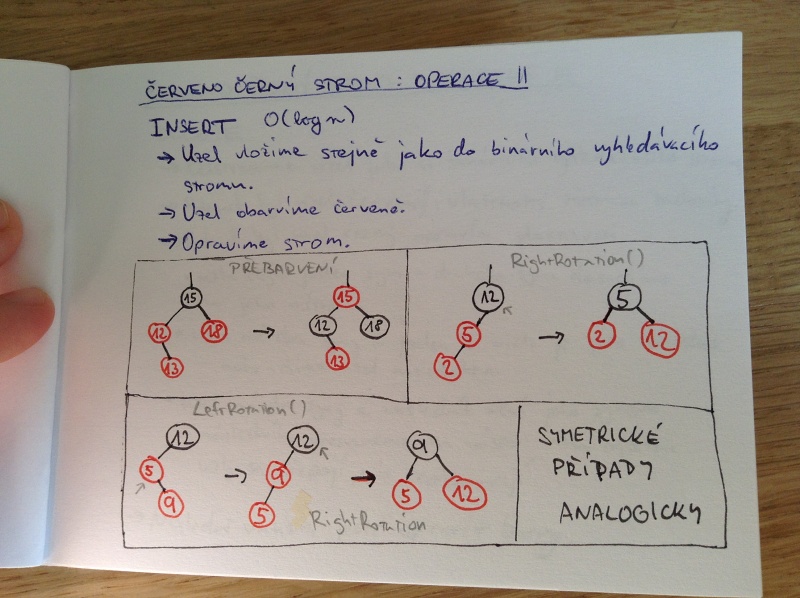 ČERVENO ČERNÝ STROM : OPERACE II
INSERT O(log n)
→ Uzel vložíme stejně jako do binárního vyhledávacího
stromu.
→ Uzel obarvíme červeně.
→ Opravíme strom.
PŘEBARVENÍ
15
12 18
13
→
15
12 18
13
RightRotation()
12
5
2
→
5
2 12
LeftRotation()
12
5
9
→
12
9
5
RightRotation
→
9
5 12
SYMETRICKÉ
PŘÍPADY
ANALOGICKY